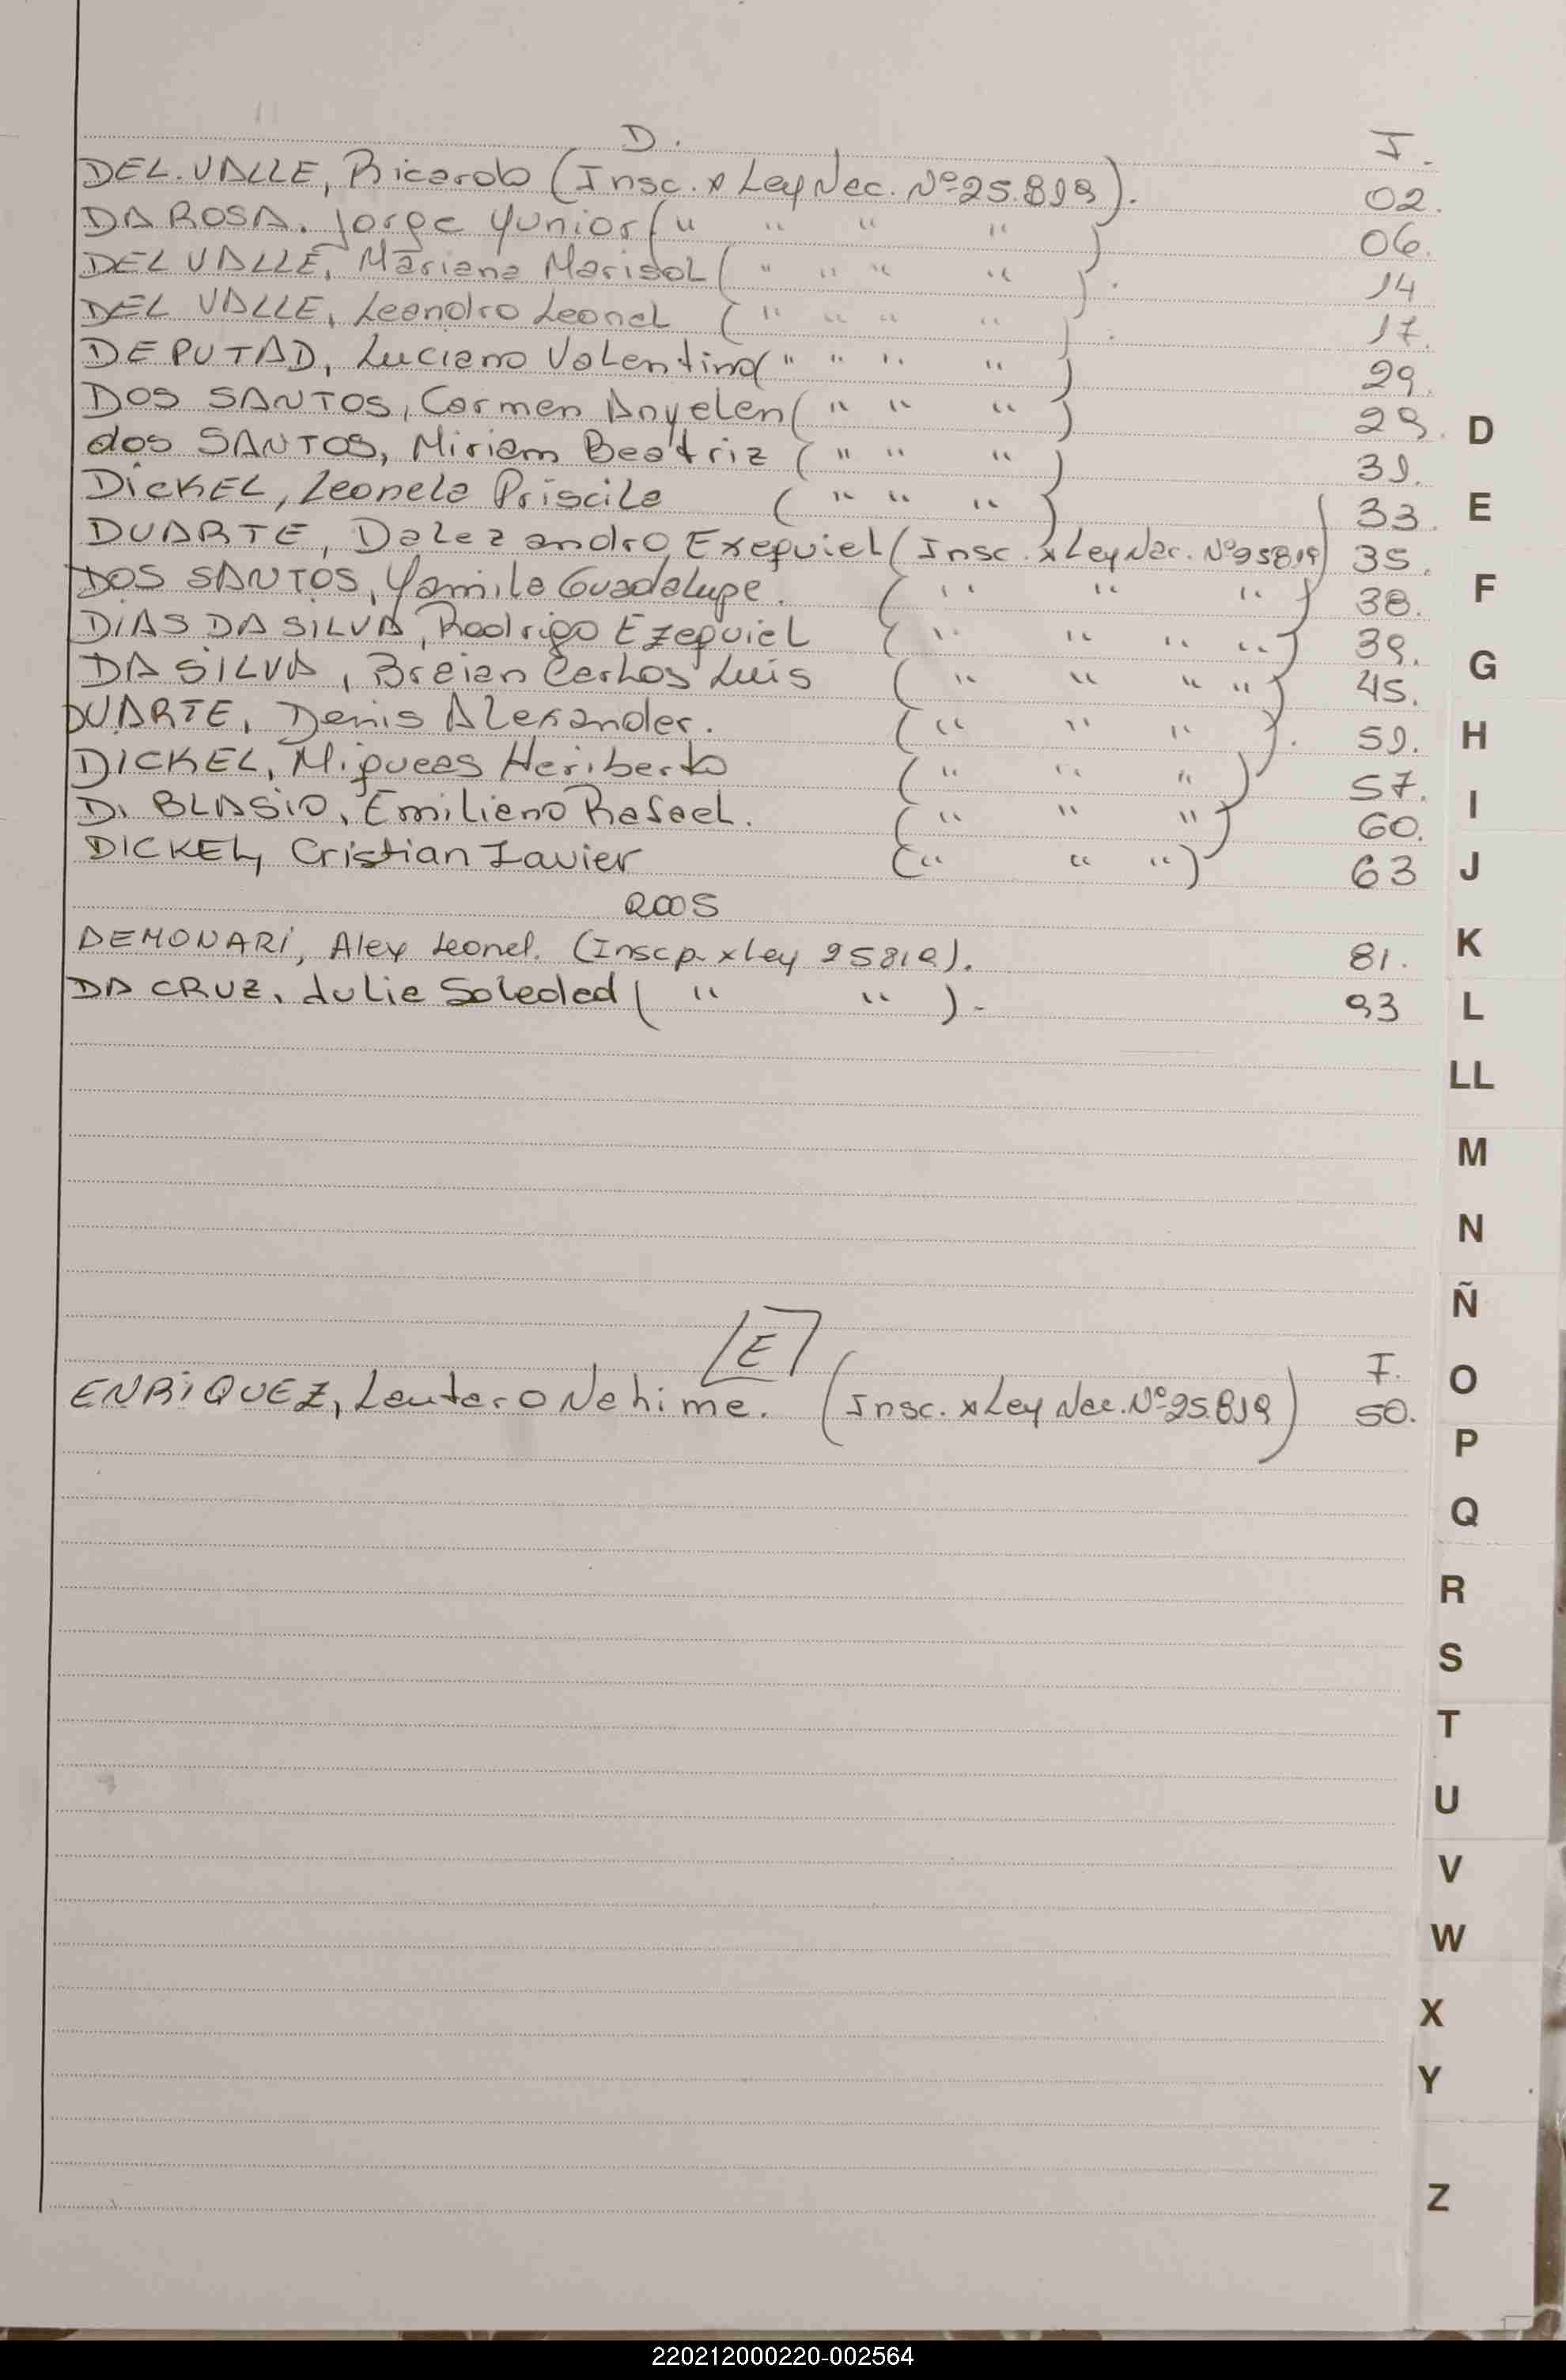 D. F.
DEL VALLE, Ricardo (Insc. x Ley Nac. Nº 25.819). 02.
DA ROSA, Jorge Yunior (" " " ") 06.
DEL VALLE, Mariana Marisol (" " " "). 14
DEL VALLE, Leandro Leonel (" " " "). 17.
DEPUTAD, Luciano Valentino (" " " ") 29.
DOS SANTOS, Carmen Anyelen (" " ") 29. D
dos SANTOS, Miriam Beatriz (" " ") 31.
DicKEL, Leonela Priscila (" " ") 33. E
DUARTE, Dalezandro Exequiel (Insc. x Ley Nac. Nº 25819) 35.
DOS SANTOS, Yamila Guadalupe. (" " ") 38. F
DIAS DA SILVA, Rodrigo Ezequiel (" " " ") 39.
DA SILVA, Breian Carlos Luis (" " " ") 45. G
DUARTE, Denis Alexander. (" " "). 51. H
DICKEL, Miqueas Heriberto (" " ") 57.
Di BLASIO, Emiliano Rafael. (" " ") 60. I
DICKEL, Cristian Javier (" " ") 63 J
2005
DEMONARI, Alex Leonel. (Inscp. x Ley 25819). 81. K
DA CRUZ, Julia Soledad (" "). 93 L
LL
M
N
Ñ
E F.
ENRiQUEZ, Lautaro Nehime. (Insc. x Ley Nac. Nº 25.819) 50. O
P
Q
R
S
T
U
V
W
X
Y
Z
220212000220-002564